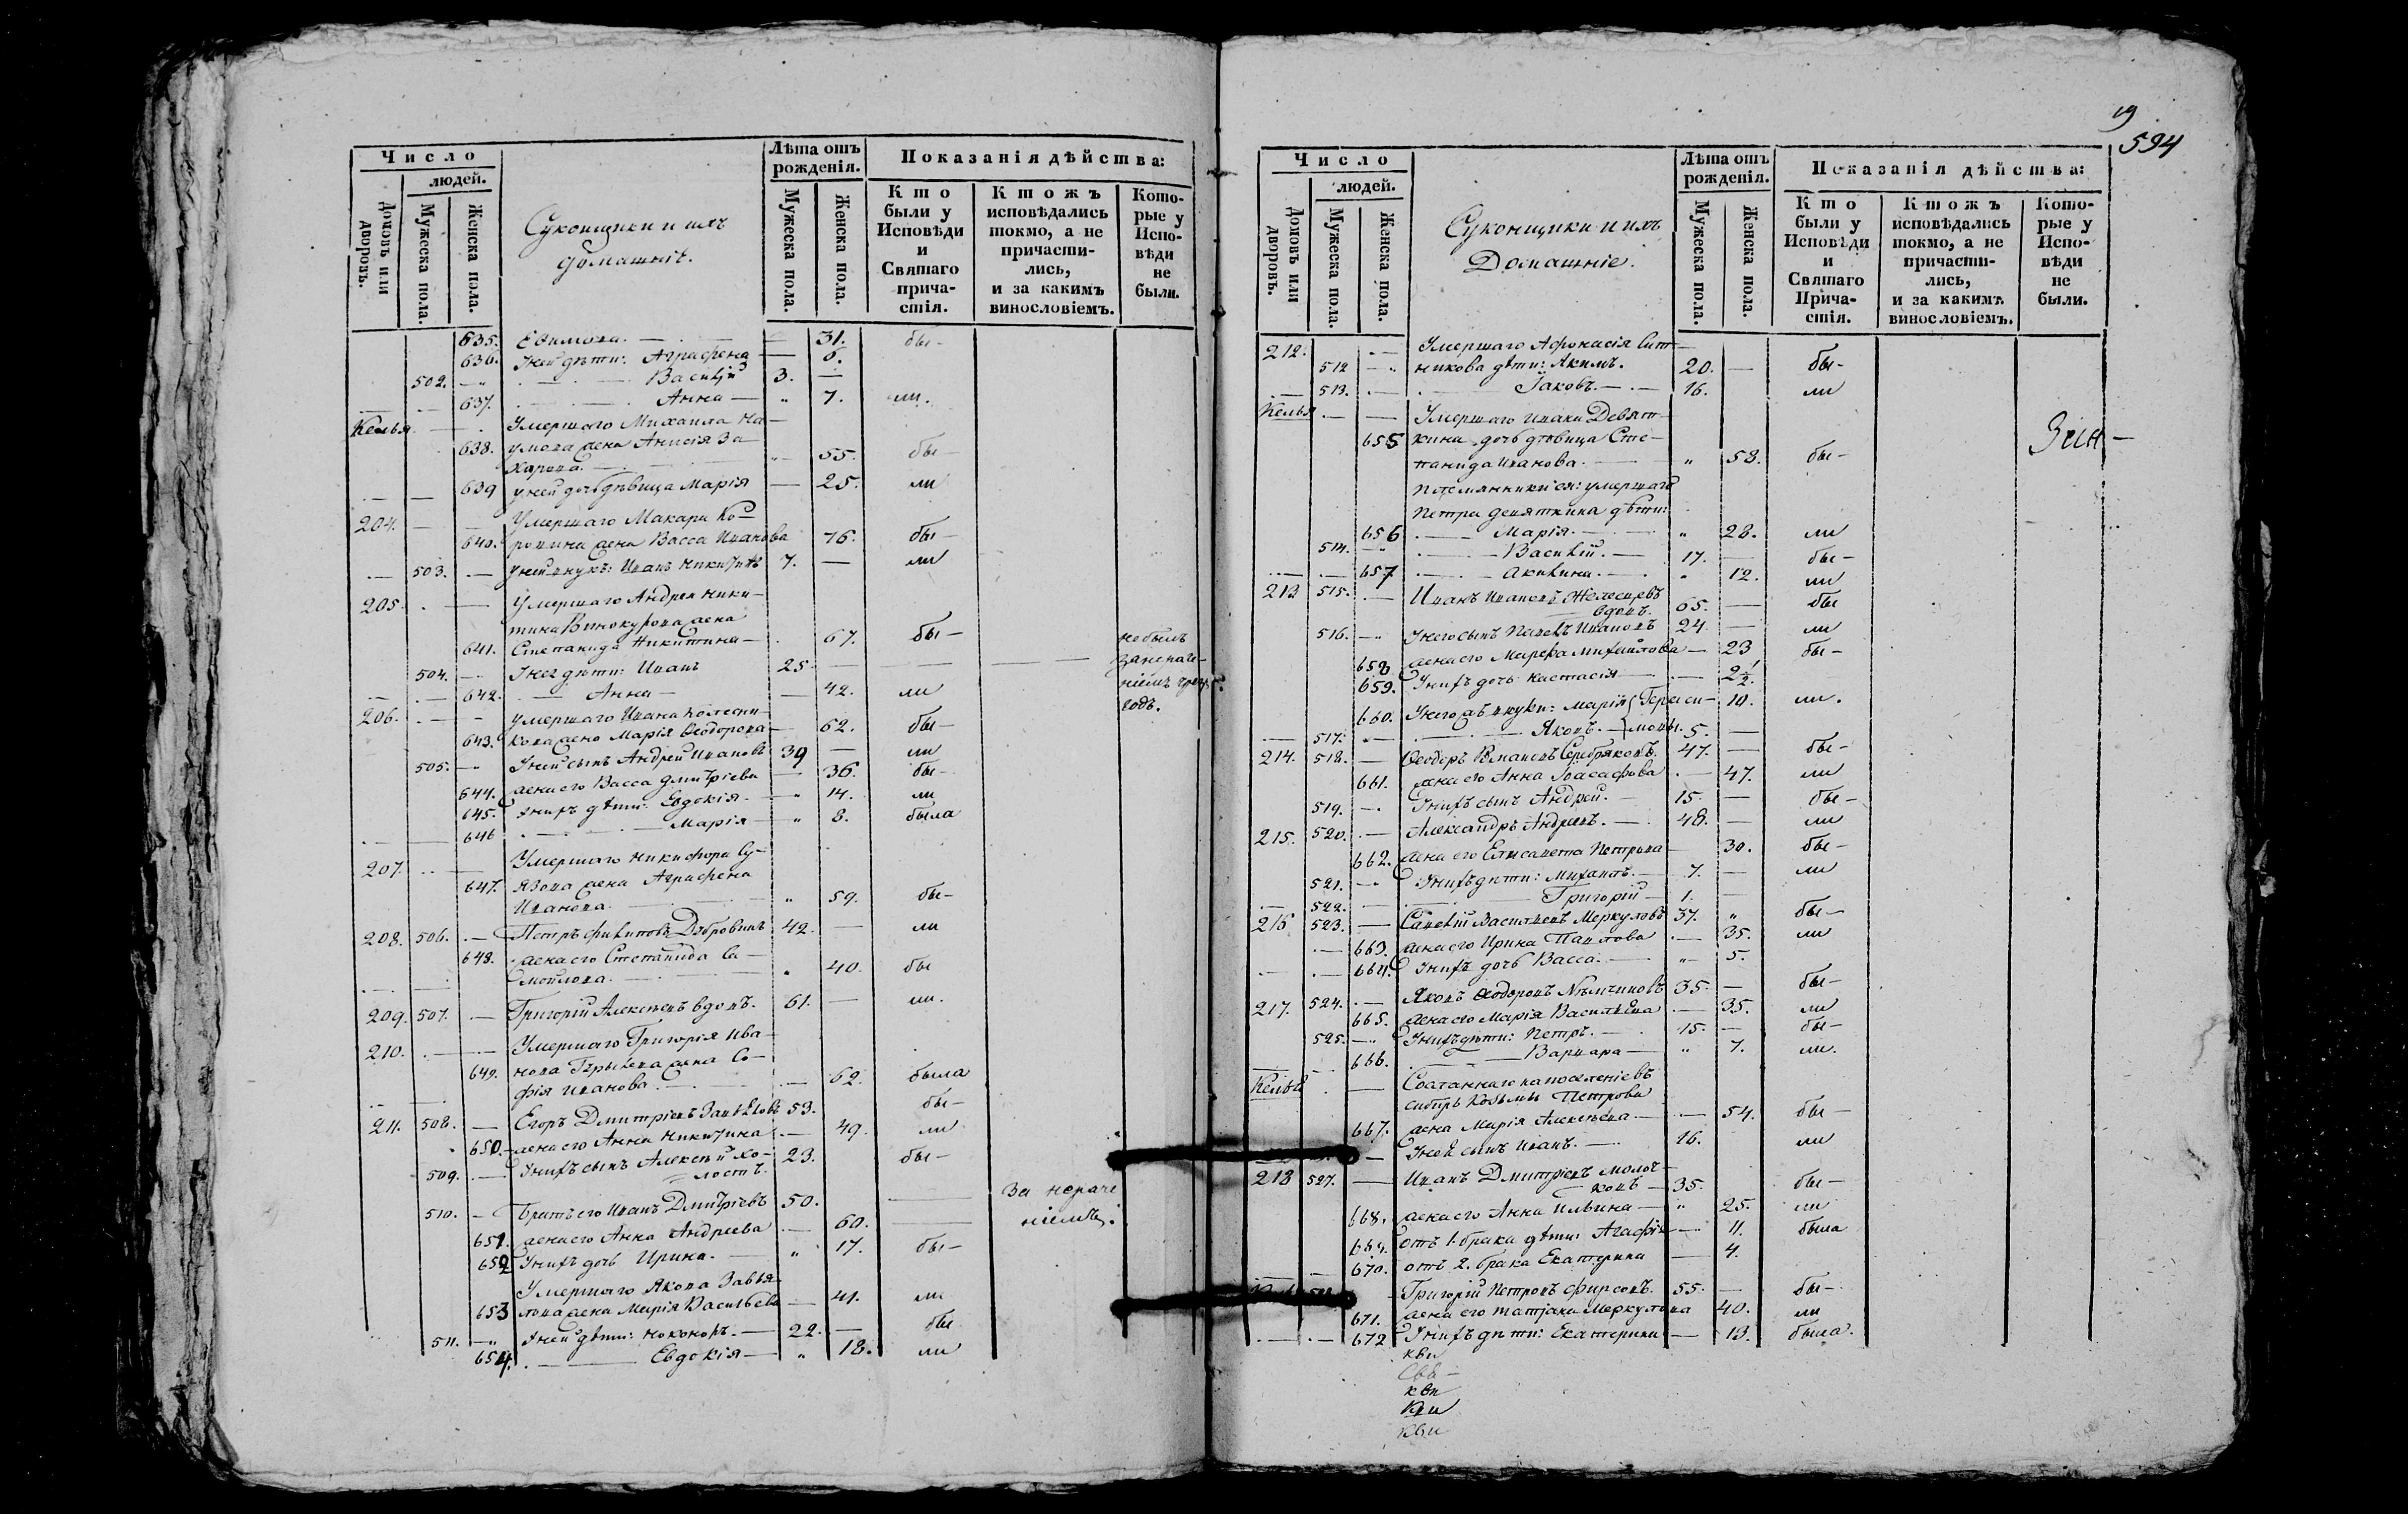 Число
людей.
Домовъ или дворовъ.
Мужеска пола.
Женска пола.
Суконщики и ихъ
домашніе.
Лѣта отъ
рожденія.
Мужеска пола.
Женска пола.
Показанія дѣйства:
Кто
были у
Исповѣди
и
Святаго
прича-
стія.
Ктожъ
исповѣдались
токмо, а не
причасти-
лись,
и за какимъ
винословіемъ.
Кото-
рые у
Испо-
вѣди
не
были.
635. Ефимова. 31. бы-
636. У ней дѣти: Аграфена 8.
502. Василій 3.
637. Анна 7. ли.
Келья Умершаго Михаила На-
638. умова жена Анисія За-
харова. 55. бы-
639 у ней дочь дѣвица Марія 25. ли
204. Умершаго Макара Ко-
640. жена Васса Иванова 76. бы-
503. у ней внукъ: Иванъ Никитинъ 7. ли
205. Умершаго Андрея Ники-
тина Винокурова жена
641. Степанида Никитина 67. бы-
504. У нея дѣти: Иванъ 25 не былъ
642. Анна 42. ли
206. умершаго Ивана Колесни-
643. кова жена Марія Ѳеодорова 62. бы-
505. У ней сынъ Андрей Ивановъ 39 ли
644. жена его Васса Дмитріева 36. бы-
645. У нихъ дѣти: Евдокія. 14. ли
646 Марія 8. была
207. Умершаго Никифора Су-
647. язова жена Аграфена
Иванова. 59. бы-
208. 506. Петръ Филиповъ 42. ли
648. жена его Степанида Са-
мойлова. 40. бы
209. 507. Григорій Алексѣевъ вдовъ. 61. ли.
210. Умершаго Григорія Ива-
649. нова жена Со-
фія Иванова. 62. была
211. 508. Егоръ Дмитріевъ Завьяловъ 53. бы-
650. жена его Анна Никитина 49. ли
509. У нихъ сынъ Алексѣй хо- 23. бы-
лостъ.
510. Братъ его Иванъ Дмитріевъ 50. За нераче
651. жена его Анна Андреева 60. ніемъ.
652 У нихъ дочь Ирина. 17. бы-
Умершаго Якова Завья-
653 лова жена Марія Васильева 41. ли
511. У ней дѣти: Никоноръ. 22. бы
654. Евдокія 18. ли
19
594
Число
людей.
Домовъ или дворовъ.
Мужеска пола.
Женска пола.
Суконщики и ихъ
Домашніе.
Лѣта отъ
рожденія.
Мужеска пола.
Женска пола.
Показанія дѣйства:
Кто
были у
Исповѣди
и
Святаго
Прича-
стія.
Ктожъ
исповѣдались
токмо, а не
причасти-
лись,
и за какимъ
винословіемъ.
Кото-
рые у
Испо-
вѣди
не
были.
212. Умершаго Афонасія Сит-
512 никова дѣти: Акимъ. 20. бы-
513. Іаковъ. 16. ли
Келья Умершаго Ивана Девят-
655 кина дочь дѣвица Сте-
панида Иванова. 58. бы-
Племянники ея: умершаго
Петра Девяткина дѣти:
656 Марія. 28. ли
514. Василій. 17. бы-
657 Акилина. 12. ли
213 515. Иванъ Ивановъ
вдовъ. 65. бы
516. У него сынъ Павелъ Ивановъ 24. ли
658 жена его Марѳа Михайлова 23 бы-
659. У нихъ дочь Настасія 2½.
660. У него внуки: Марія Гераси- 10. ли.
517. Яковъ. мовы. 5.
214. 518. Ѳеодоръ Романовъ Серебряковъ. 47. бы-
661. жена его Анна Іоасафова 47. ли
519. У нихъ сынъ Андрей. 15. бы-
215. 520. Александръ Андреевъ. 48. ли
662. жена его Елисавета Петрова 30. бы-
521. У нихъ дѣти: Михаилъ. 7. ли
522. Григорій 1.
216 523. Савелій Васильевъ Меркуловъ 37. бы-
663. жена его Ирина Павлова 35. ли
664. У нихъ дочь Васса. 5.
217. 524. Яковъ Ѳеодоровъ Нѣмчиновъ 35. бы-
665. жена его Марія Васильева 35. ли
525. У нихъ дѣти: Петръ. 15. бы-
666. Варвара 7. ли.
Келья Сосланнаго на поселеніе въ
сибирь Козьмы Петрова
667. жена Марія Алексѣева 54. бы-
У ней сынъ Иванъ. 16. ли
218 527. Иванъ Дмитріевъ Молоч-
ковъ 35. бы-
668. жена его Анна Ильина 25. ли
669. отъ 1. брака дѣти: Агафія 11. была
670. отъ 2. брака Екатерина 4.
Григорій Петровъ Фирсовъ. 55. бы-
671. жена его татіана Меркулова 40. ли
672 У нихъ дѣти: Екатерина 13. была.